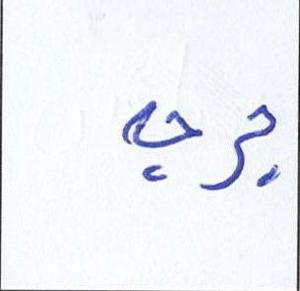 جرجي